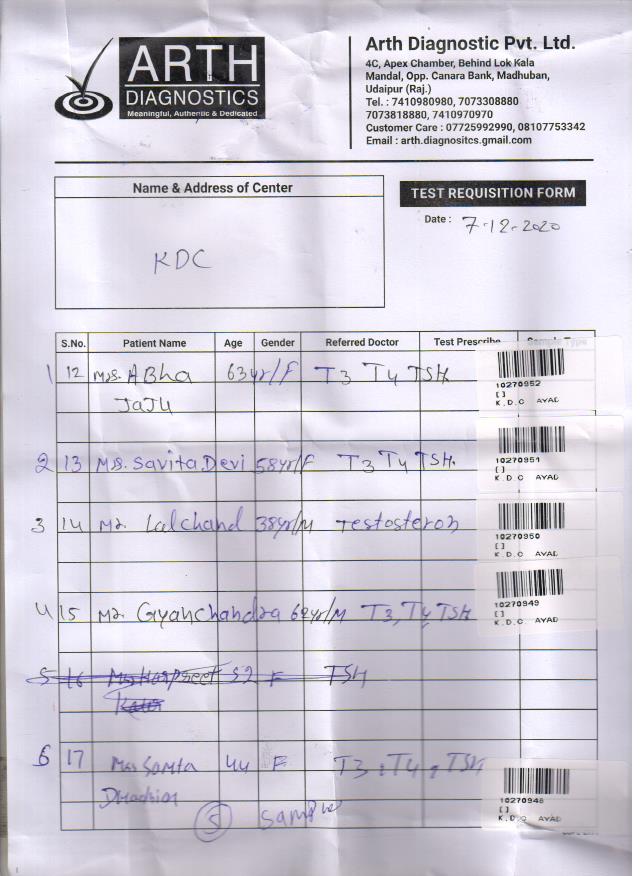 ARTH
DIAGNOSTICS
Meaningful, Authentic & Dedicated
Arth Diagnostic Pvt. Ltd.
4C, Apex Chamber, Behind Lok Kala
Mandal, Opp. Canara Bank, Madhuban,
Udaipur (Raj.)
Tel. : 7410980980, 7073308880
7073818880, 7410970970
Customer Care : 07725992990, 08107753342
Email : arth.diagnositcs.gmail.com
Name & Address of Center
TEST REQUISITION FORM
Date : 7-12-2020
KDC
S.No. Patient Name Age Gender Referred Doctor Test Prescribe Sample Type
1 12 Mrs. ABha 63yr/F T3 T4 TSH
JaJu
10270952
[ ]
K.D.C AYAD
2 13 Mrs. Savita Devi 58yr/F T3 T4 TSH.
10270951
[ ]
K.D.C AYAD
3 14 Mr. Lalchand 38yr/M Testosteron
10270950
[ ]
K.D.C AYAD
4 15 Mr. Gyanchandra 62yr/M T3, T4, TSH
10270949
[ ]
K.D.C AYAD
5 16 Mrs Harpreet 52 F TSH
Kaur
6 17 Mrs Samta 44 F T3, T4, TSH
10270948
[ ]
K.D.C AYAD
5 Sample